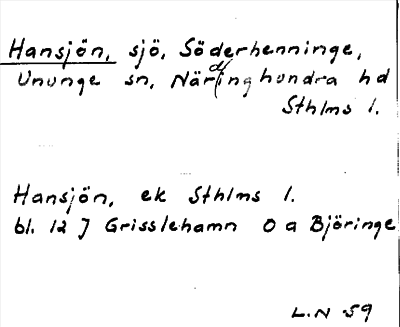 Hansjön, sjö, Söderhenninge,
Ununge sn, Närdinghundra hd
Sthlms l.
Hansjön, ek Sthlms l.
bl. 12 J Grisslehamn O a Björinge
L.N 59